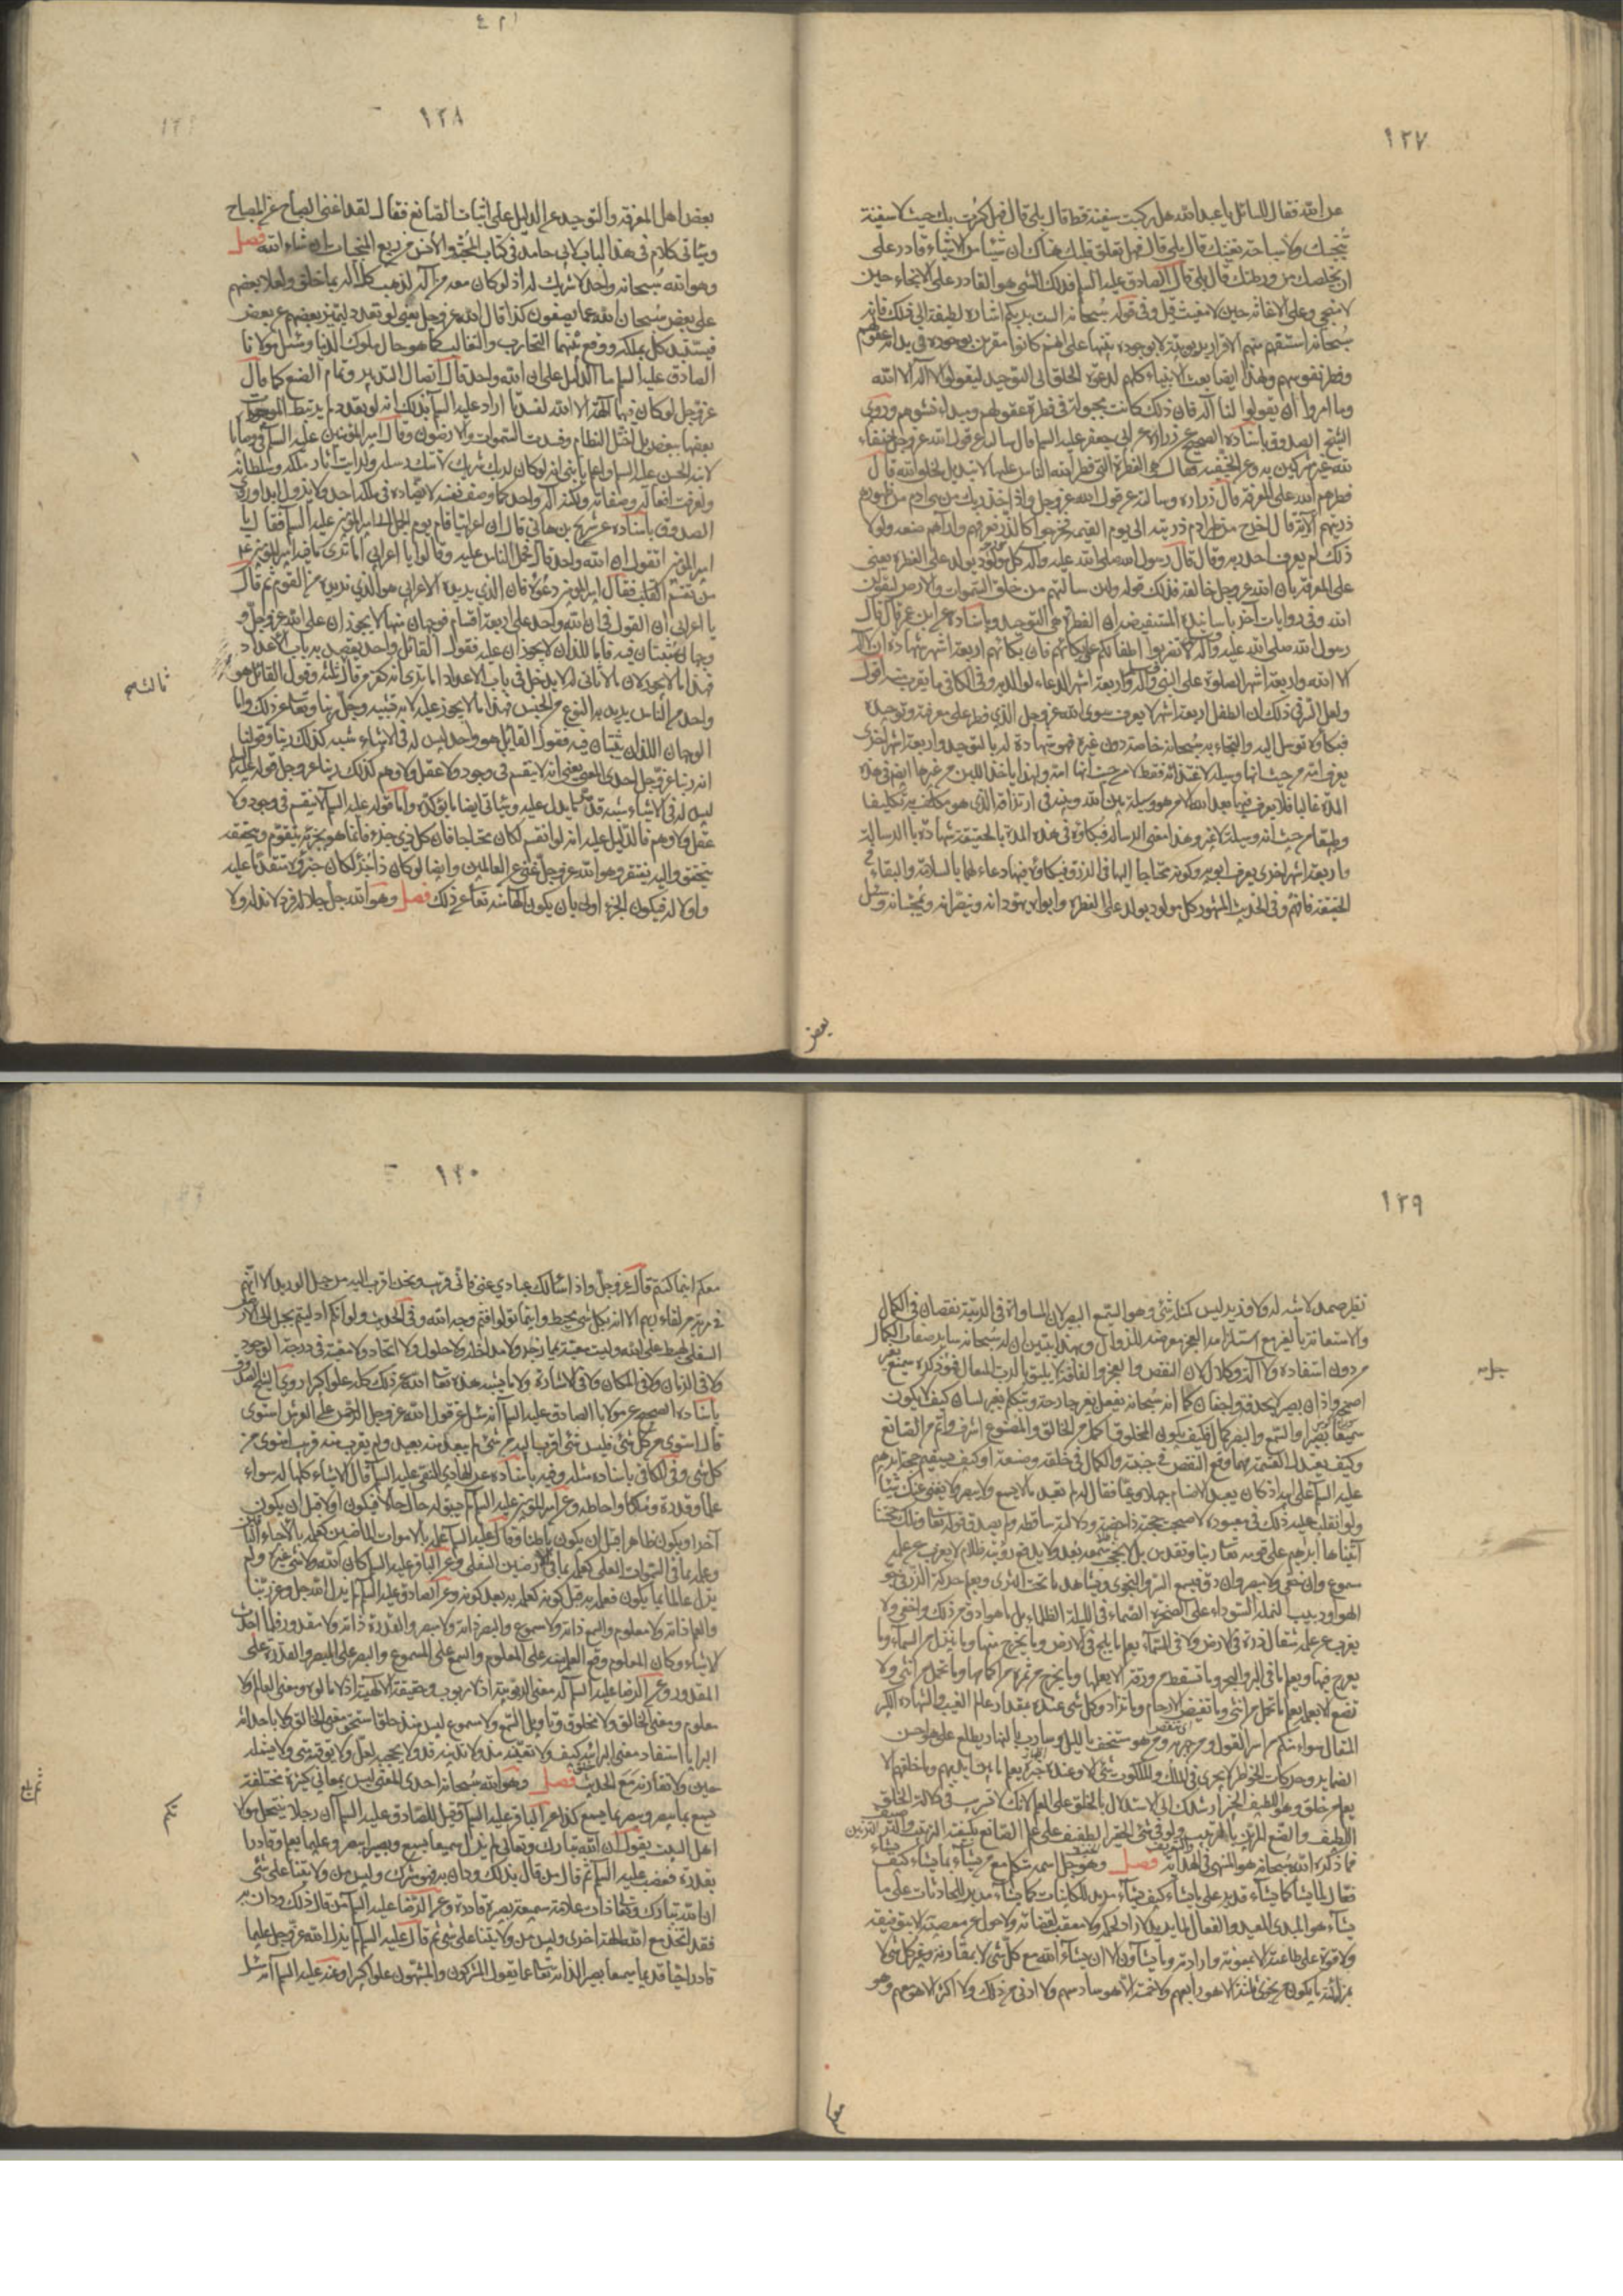 ١٢٧
عن الله فقال للسائل يا عبد الله هل ركبت سفينة قط قال بلى قال فهل كسرت بك حيث لا سفينة
تنجيك ولا سباحة تغنيك قال بلى قال فهل تعلق قلبك هناك ان شيئا من الاشياء قادر على
ان يخلصك من ورطتك قال بلى قال الصادق عليه السلم فذلك الشئ هو القادر على الانجاء حين
لا منجي وعلى الاغاثة حين لا مغيث قيل وفي قوله سبحانه الست بربكم اشارة لطيفة الى ذلك فانه
سبحانه استفهم منهم الاقرار بربوبيته لا بوجوده تنبيها على انهم كانوا مقرين بوجوده في بداية عقولهم
وفطر نفوسهم ولهذا ايضا بعث الانبياء كلهم لدعوة الخلق الى التوحيد ليقولوا لا اله الا الله
وما امروا ان يقولوا لنا اله فان ذلك كانت مجبولة في فطرة عقولهم ومبداء نشوهم وروى
الشيخ الصدوق باسناده الصحيح عن زرارة عن ابي جعفر عليه السلم قال سالته عن قول الله عز وجل حنفاء
لله غير مشركين به وعن الحنيفية فقال هي الفطرة التي فطر الله الناس عليها لا تبديل لخلق الله قال
فطرهم الله على المعرفة قال زرارة وسالته عن قول الله عز وجل واذ اخذ ربك من بني ادم من ظهورهم
ذريتهم الآية قال اخرج من ظهر ادم ذريته الى يوم القيمة فخرجوا كالذر فعرفهم واراهم صنعه ولولا
ذلك لم يعرف احد ربه وقال قال رسول الله صلى الله عليه واله كل مولود يولد على الفطرة يعني
على المعرفة بان الله عز وجل خالقه فذلك قوله ولئن سالتهم من خلق السموات والارض ليقولن
الله وفي روايات آخر باسانيده المستفيضة ان الفطرة هي التوحيد وباسناده عن ابن عمر قال قال
رسول الله صلى الله عليه وآله لا تضربوا اطفالكم على بكائهم فان بكائهم اربعة اشهر شهادة ان لا اله
الا الله واربعة اشهر الصلوة على النبي وآله واربعة اشهر الدعاء لوالديه وفي الكافي ما يقرب منه اقول
ولعل السر في ذلك ان الطفل اربعة اشهر لا يعرف سوى الله عز وجل الذي فطر على معرفته وتوحيده
فبكاؤه توسل اليه والتجاء به سبحانه خاصة دون غيره فهو شهادة له بالتوحيد واربعة اشهر اخرى
يعرف امه من حيث انها وسيلة لاغتذائه فقط لا من حيث انها امه ولهذا ياخذ اللبن من غيرها ايضا في هذه
المدة غالبا فلا يعرف فيها بعد الله الا من هو وسيلة بين الله وبينه في ارتزاقه الذي هو مكلف به تكليفا
طبيعيا من حيث انه وسيلة لا غير وهذا معنى الرسالة فبكاؤه في هذه المدة بالحقيقة شهادة بالرسالة
واربعة اشهر اخرى يعرف ابويه وكونه محتاجا اليهما في الرزق فبكاؤه فيها دعاء لهما بالسلامة والبقاء في
الحقيقة فافهم وفي الحديث المشهور كل مولود يولد على الفطرة وابواه يهودانه وينصرانه ويمجسانه وسئل
بعض
١٢٨
بعض اهل المعرفة والتوحيد عن الدليل على اثبات الصانع فقال لقد اغنى الصباح عن المصباح
وسياتي كلام في هذا الباب لابي حامد في كتاب المحبة والانس من ربع المنجيات ان شاء الله فصل
وهو الله سبحانه واحد لا شريك له اذ لو كان معه من آله لذهب كل اله بما خلق ولعلا بعضهم
على بعض سبحان الله عما يصفون كذا قال الله عز وجل يعني لو تعدد ليتميز بعضهم عن بعض
فيستبد كل بملكه ووقع بينهما التحارب والتغالب كما هو حال ملوك الدنيا وسئل مولانا
الصادق عليه السلم ما الدليل على ان الله واحد قال اتصال التدبير وتمام الصنع كما قال
عز وجل لو كان فيهما آلهة الا الله لفسدتا اراد عليه السلم بذلك انه لو تعدد لم يرتبط الموجودات
بعضها ببعض بل اختل النظام وفسدت السموات والارضون وقال امير المؤمنين عليه السلم في وصاياه
لابنه الحسن عليه السلم واعلم يا بني انه لو كان لربك شريك لاتتك رسله ولرايت اثار ملكه وسلطانه
ولعرفت افعاله وصفاته ولكنه اله واحد كما وصف نفسه لا يضاده في ملكه احد ولا يزول ابدا وروى
الصدوق باسناده عن شريح بن هاني قال ان اعرابيا قام يوم الجمل الى امير المؤمنين عليه السلم فقال يا
امير المؤمنين اتقول ان الله واحد قال فحمل الناس عليه وقالوا يا اعرابي اما ترى ما فيه امير المؤمنين
من تقسم القلب فقال امير المؤمنين دعوه فان الذي يريده الاعرابي هو الذي نريده من القوم ثم قال
يا اعرابي ان القول في ان الله واحد على اربعة اقسام فوجهان منها لا يجوزان على الله عز وجل و
وجهان يثبتان فيه فاما اللذان لا يجوزان عليه فقول القائل واحد يقصد به باب الاعداد
فهذا ما لا يجوز لان ما لا ثاني له لا يدخل في باب الاعداد اما ترى انه كفر من قال ثلثة وقول القائل هو
ثالث ثلثة
واحد من الناس يريد به النوع من الجنس فهذا ما لا يجوز عليه لانه تشبيه وجل ربنا وتعالى عن ذلك واما
الوجهان اللذان يثبتان فيه فقول القائل هو واحد ليس له في الاشياء شبه كذلك ربنا وقولنا
انه ربنا عز وجل احدي المعنى يعني انه لا ينقسم في وجود ولا عقل ولا وهم كذلك ربنا عز وجل
ليس له في الاشياء شبه قد مر ما يدل عليه وسياتي ايضا ما يؤكده واما قوله عليه السلم لا ينقسم في وجود ولا
عقل ولا وهم فالدليل عليه انه لو انقسم لكان محتاجا فان كل ذي جزء فانما هو بجزئه يتقوم وبتحققه
يتحقق واليه يفتقر وهو الله عز وجل غني عن العالمين وايضا لو كان ذا جزء لكان جزؤه متقدما عليه
واولا له فيكون الجزء اولى بان يكون الها منه تعالى عن ذلك فصل وهو الله جل جلاله فرد لا ند له ولا
١٢٩
نظير صمد لا شبه له ولا ضد له ليس كمثله شئ وهو السميع البصير لان المساواة في الرتبة نقصان في الكمال
والاستعانة بالغير مع استلزامه العجز معرضة للزوال وبهذا يتبين ان له سبحانه ساير صفات الكمال
من دون استفادة ولا آلة وكلال لان النقص والعجز والفاقة لا يليق بالرب المتعال فهو ذكره سميع بغير
اصمخ واذان بصير لا بحدقة واجفان كما انه سبحانه يفعل بغير جارحة ويتكلم بغير لسان كيف لا يكون
سميعا بصيرا والسمع والبصر كمال فكيف يكون المخلوق اكمل من الخالق والمصنوع اشرف واتم من الصانع
وكيف يعتدل القسمة مهما وقع النقص في جنبته والكمال في خلقه وصنعته او كيف يستقيم حجة ابراهيم
عليه السلم على ابيه اذ كان يعبد الاصنام جهلا وغيا فقال له لم تعبد ما لا يسمع ولا يبصر ولا يغني عنك شيئا
ولو انقلب عليه ذلك في معبوده لاصبحت حجته داحضة ودلالته ساقطة ولم يصدق قوله تعالى وتلك حجتنا
آتيناها ابراهيم على قومه تعالى ربنا وتقدس بل لا يحجب سمعه بعد ولا يدفع رؤيته ظلام لا يعزب عن علمه
مسموع وان خفي ولا مبصر وان دق فيسمع السر والنجوى ويشاهد ما تحت الثرى ويعلم حركة الذر في جو
الهواء ودبيب النملة السوداء على الصخرة الصماء في الليلة الظلماء بل ما هو ادق من ذلك واخفى ولا
يعزب عن علمه مثقال ذرة في الارض ولا في السماء يعلم ما يلج في الارض وما يخرج منها وما ينزل من السماء وما
يعرج فيها ويعلم ما في البر والبحر وما تسقط من ورقة الا يعلمها وما يخرج من ثمرة من اكمامها وما تحمل من انثى ولا
تضع الا بعلمه يعلم ما تحمل من انثى وما تغيض الارحام وما تزداد وكل شئ عنده بمقدار عالم الغيب والشهادة الكبير
المتعال سواء منكم من اسر القول ومن جهر به ومن هو مستخف بالليل وسارب بالنهار يطلع على هواجس
الضماير وحركات الخواطر لا يجري في الملك والملكوت شئ الا وعنده خبره يعلم ما بين ايديهم وما خلفهم الا
يعلم من خلق وهو اللطيف الخبير ارشدك الى الاستدلال بالخلق على العلم لانك لا تستريب في دلالة الخلق
اللطيف والصنع المزين بالترتيب ولو في شئ الحقير الضعيف على علم الصانع بكيفية الترتيب والترصيف
فما ذكره الله سبحانه هو المنتهى في الهداية فصل وهو جل اسمه متكلم مع من يشاء بما يشاء كيف يشاء
فعال لما يشاء كما يشاء قدير على ما يشاء كيف يشاء مريد للكاينات كما يشاء مدبر للحادثات على ما
يشاء هو المبدئ المعيد والفعال لما يريد لا راد لحكمه ولا معقب لقضائه ولا حول عن معصيته الا بتوفيقه
ولا قوة على طاعته الا بمعونته وارادته وما يشاؤن الا ان يشاء الله مع كل شئ لا بمقارنة وغير كل شئ لا
بمزايلة ما يكون من نجوى ثلثة الا هو رابعهم ولا خمسة الا هو سادسهم ولا ادنى من ذلك ولا اكثر الا هو معهم وهو
معكم
١٣٠
معكم اينما كنتم قال عز وجل واذا سالك عبادي عني فاني قريب ونحن اقرب اليه من حبل الوريد الا انهم
في مرية من لقاء ربهم الا انه بكل شئ محيط واينما تولوا فثم وجه الله وفي الحديث ولو انكم ادليتم بحبل الى الارض
السفلى لهبط على الله وليست معيته بممازجة ولا مداخلة ولا حلول ولا اتحاد ولا معية في درجة الوجود
ولا في الزمان ولا في المكان ولا في الاشارة ولا ما يشبه هذه تعالى الله عن ذلك كله علوا كبيرا روى الشيخ الصدوق
باسناده الصحيح عن مولانا الصادق عليه السلم انه سئل عن قول الله عز وجل الرحمن على العرش استوى
قال استوى من كل شئ فليس شئ اقرب اليه من شئ لم يبعد منه بعيد ولم يقرب منه قريب استوى من
كل شئ وفي الكافي باسناده مثله وفيه باسناده عن الهادي النقي عليه السلم قال الاشياء كلها له سواء
علما وقدرة وملكا واحاطة وعن امير المؤمنين عليه السلم لم يسبق له حال حالا فيكون اولا قبل ان يكون
آخرا ويكون ظاهرا قبل ان يكون باطنا وقال عليه السلم علمه بالاموات الماضين كعلمه بالاحياء الباقين
وعلمه بما في السموات العلى كعلمه بما في الارضين السفلى وعن الباقر عليه السلم كان الله ولا شئ غيره ولم
يزل عالما بما يكون فعلمه به قبل كونه كعلمه به بعد كونه وعن الصادق عليه السلم لم يزل الله جل وعز ربنا
والعلم ذاته ولا معلوم والسمع ذاته ولا مسموع والبصر ذاته ولا مبصر والقدرة ذاته ولا مقدور فلما احدث
الاشياء وكان المعلوم وقع العلم منه على المعلوم والسمع على المسموع والبصر على المبصر والقدرة على
المقدور وعن الرضا عليه السلم له معنى الربوبية اذ لا مربوب وحقيقة الالهية اذ لا مالوه ومعنى العالم ولا
معلوم ومعنى الخالق ولا مخلوق وتاويل السمع ولا مسموع ليس منذ خلق استحق معنى الخالق ولا باحداثه
البرايا استفاد معنى البرائية كيف ولا تغيبه مذ ولا تدنيه قد ولا يحجبه لعل ولا يوقته متى ولا يشمله
حين ولا تقارنه مع الحديث فصل وهو الله سبحانه احدي المعنى ليس بمعاني كثيرة مختلفة
يسمع بما يبصر ويبصر بما يسمع كذا عن الباقر عليه السلم قيل للصادق عليه السلم ان رجلا ينتحل موالاة
اهل البيت يقول ان الله تبارك وتعالى لم يزل سميعا بسمع وبصيرا ببصر وعليما بعلم وقادرا
بقدرة فغضب عليه السلم ثم قال من قال بذلك ودان به فهو مشرك وليس من ولايتنا على شئ
ان الله تبارك وتعالى ذات علامة سميعة بصيرة قادرة وعن الرضا عليه السلم من قال ذلك ودان به
فقد اتخذ مع الله الهة اخرى وليس من ولايتنا على شئ ثم قال عليه السلم لم يزل الله عز وجل عليما
قادرا حيا قديما سميعا بصيرا لذاته تعالى عما يقول المشركون والمشبهون علوا كبيرا وعنه عليه السلم انه سئل